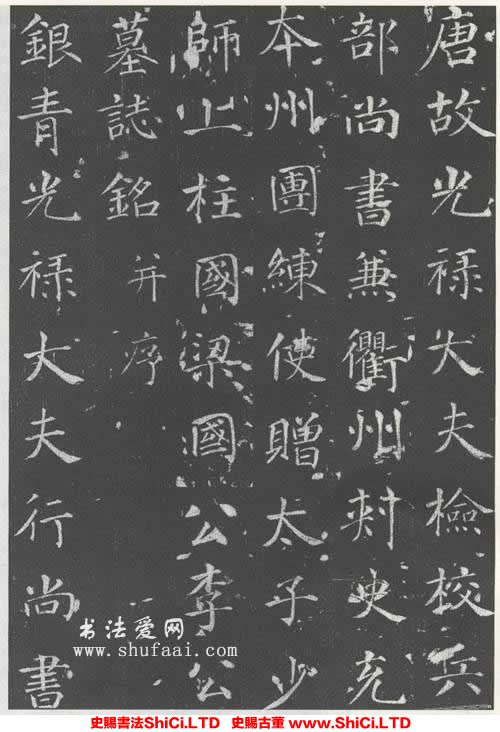 唐故光祿大夫檢校兵
部尚書兼衢州刺史充
本州團練使贈太子少
師上柱國梁國公李公
墓誌銘并序
銀青光祿大夫行尚書
书法爱网
www.shufaai.com
史賜書法ShiCi.LTD 史賜古董 www.ShiCi.LTD